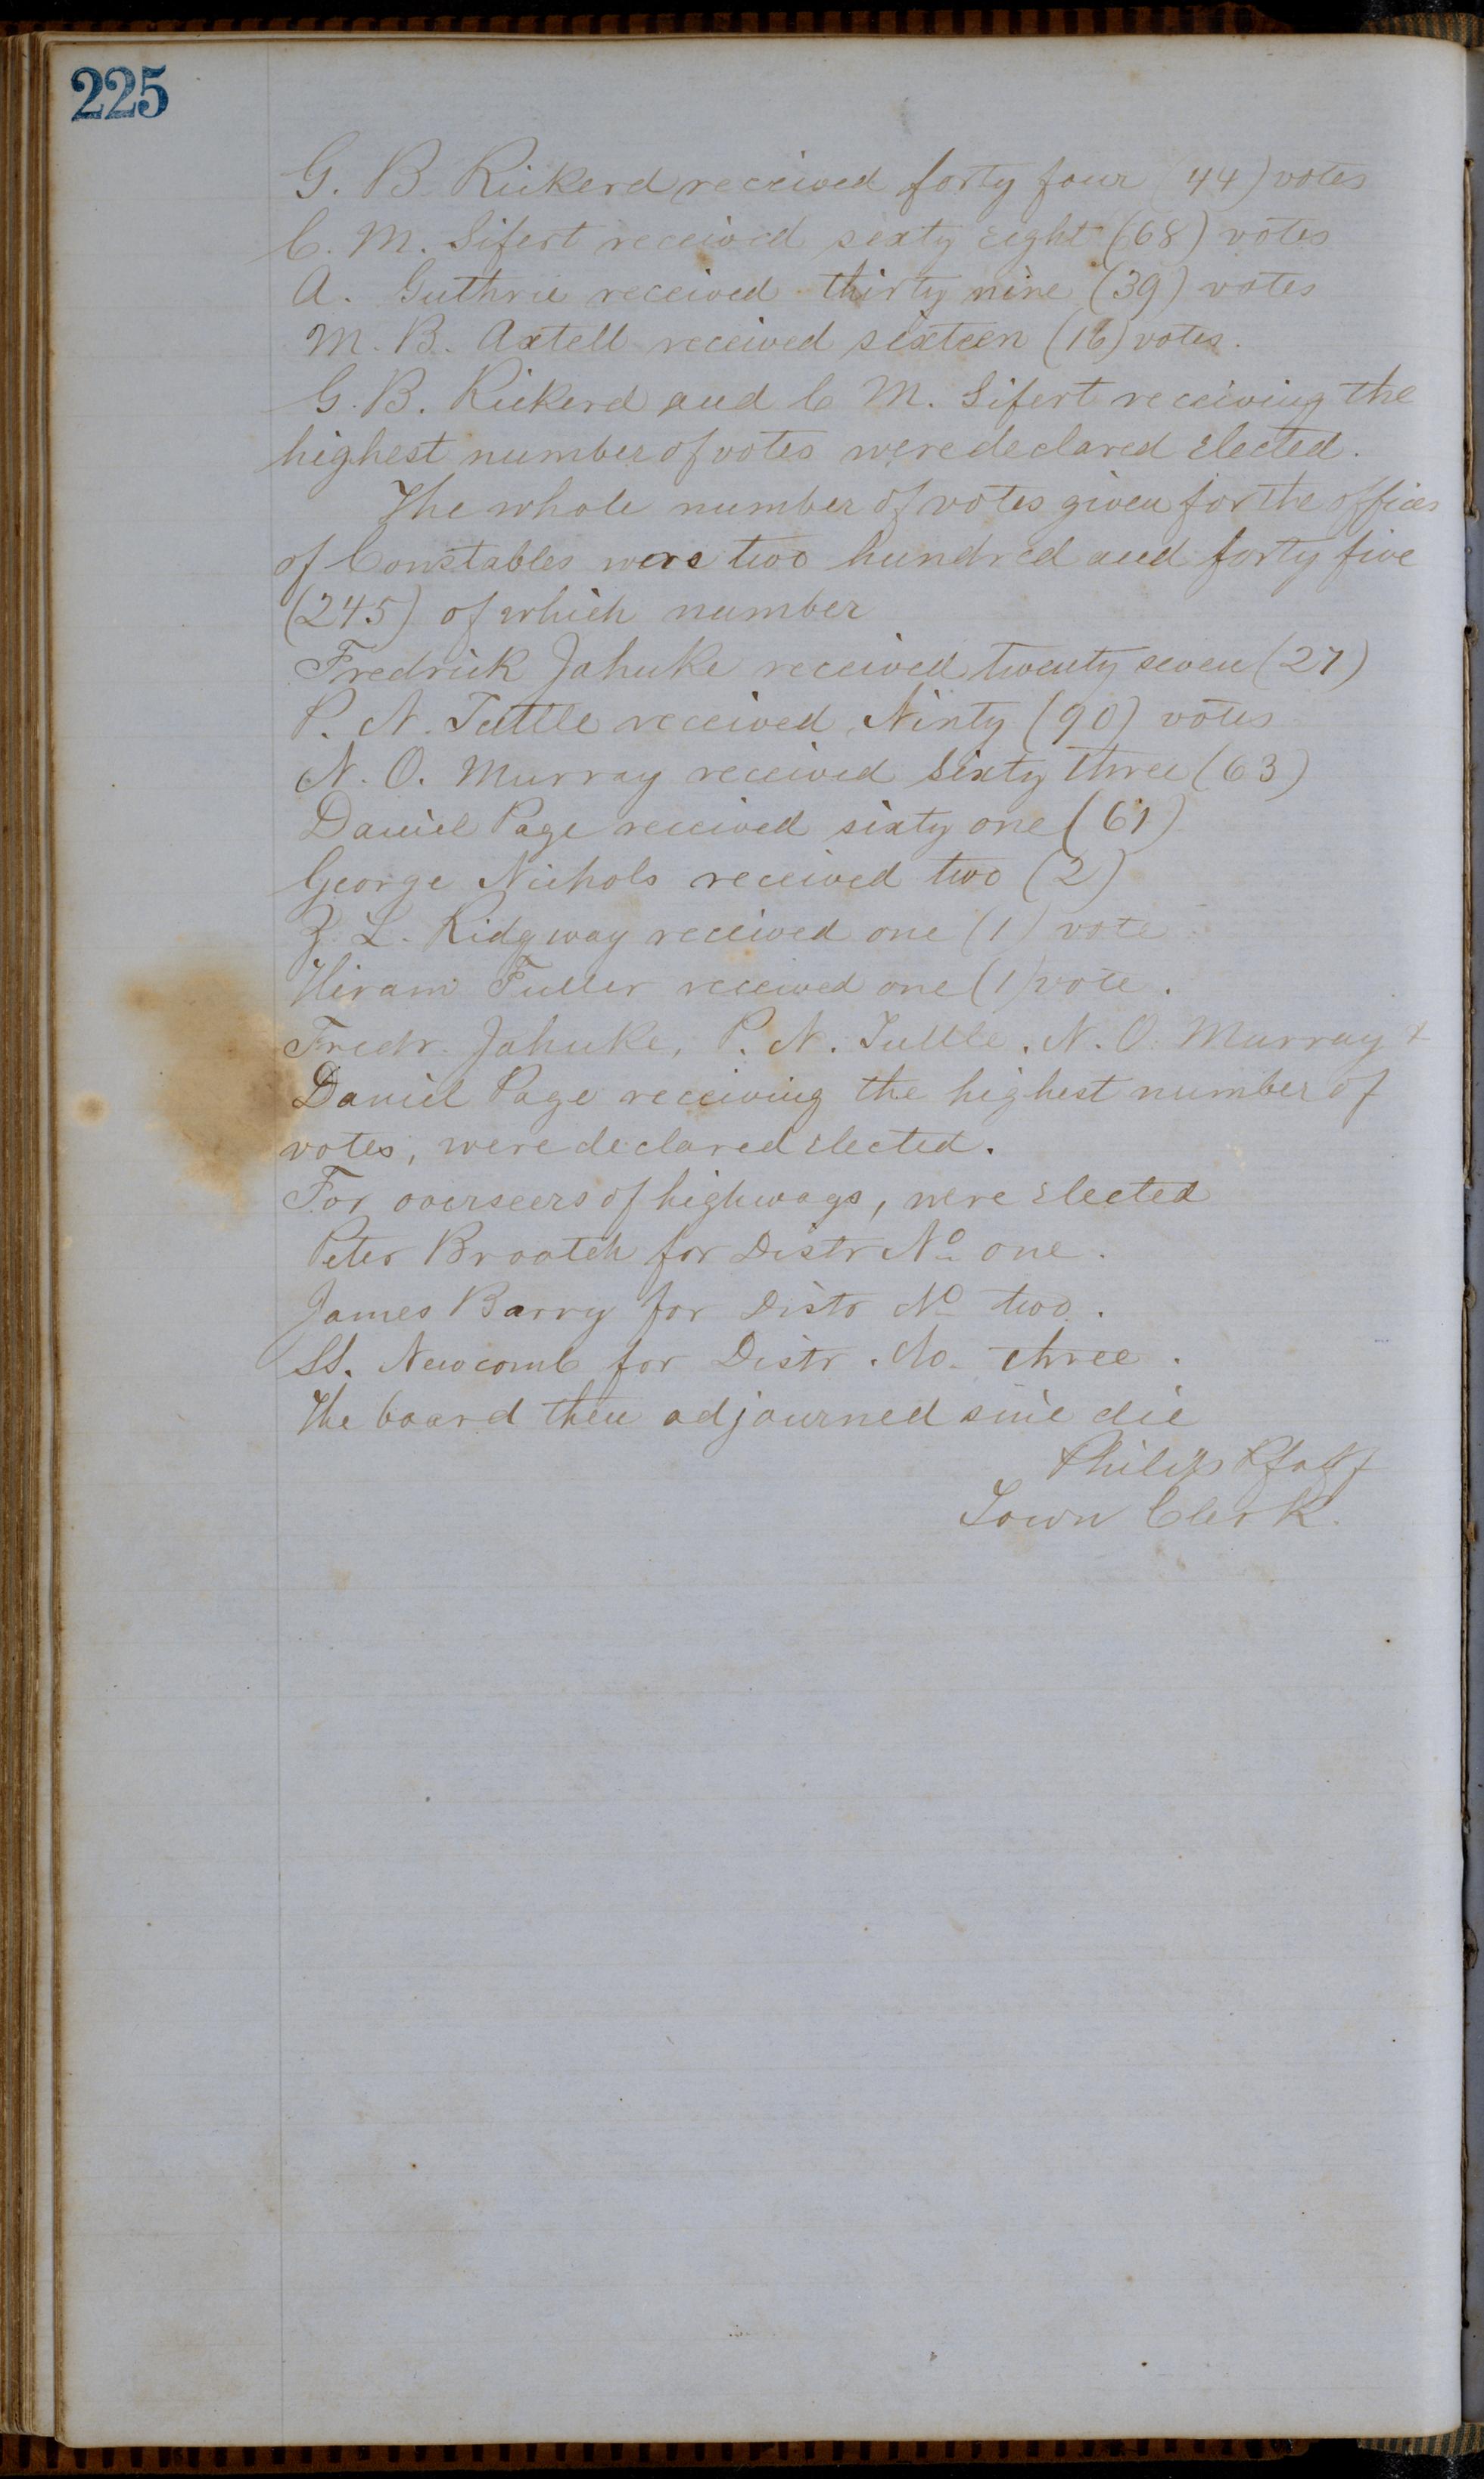 225
G. B. Rickerd received forty four (44) votes
C. M. Sifert received sixty eight (68) votes
A. Guthrie received thirty nine (39) votes
M. B. Axtell received sixteen (16) votes.
G. B. Rickerd and C M. Sifert receiving the
highest number of votes were declared elected.
The whole number of votes given for the offices
of Constables were two hundred and forty five
(245) of which number
Fredrick Jahnke received twenty seven (27)
P. N. Tuttle received Ninty (90) votes
N. O. Murray received Sixty three (63)
Daniel Page received sixty one (61)
George Nichols received two (2)
Z. L. Ridgway received one (1) vote
Hiram Fuller received one (1) vote.
Fredr. Jahnke, P. N. Tuttle, N. O. Murray &
Daniel Page receiving the highest number of
votes, were declared elected.
For overseers of highways, were elected
Peter Broatch for Distr No one.
James Barry for Distr No two.
Newcomb for Distr. No. three.
The board then adjourned sine die
Philip Pfaff
Town Clerk.